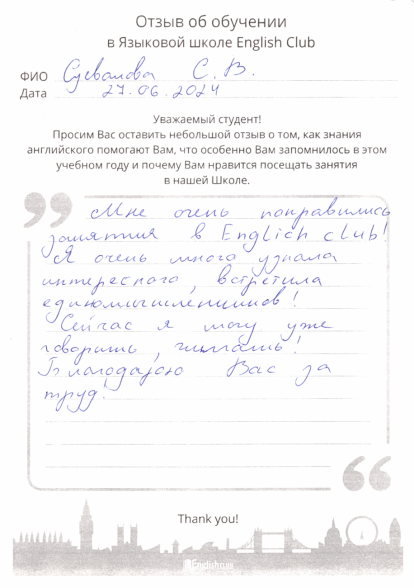 Отзыв об обучении
в Языковой школе English Club
ФИО С. В.
Дата 27.06.2024
Уважаемый студент!
Просим Вас оставить небольшой отзыв о том, как знания
английского помогают Вам, что особенно Вам запомнилось в этом
учебном году и почему Вам нравится посещать занятия
в нашей Школе.
Мне очень понравились
занятия в Englich club!
Я очень много узнала
интересного, встретила
единомышленников!
Сейчас я могу уже
говорить, читать!
Благодарю Вас за
труд!
Thank you!